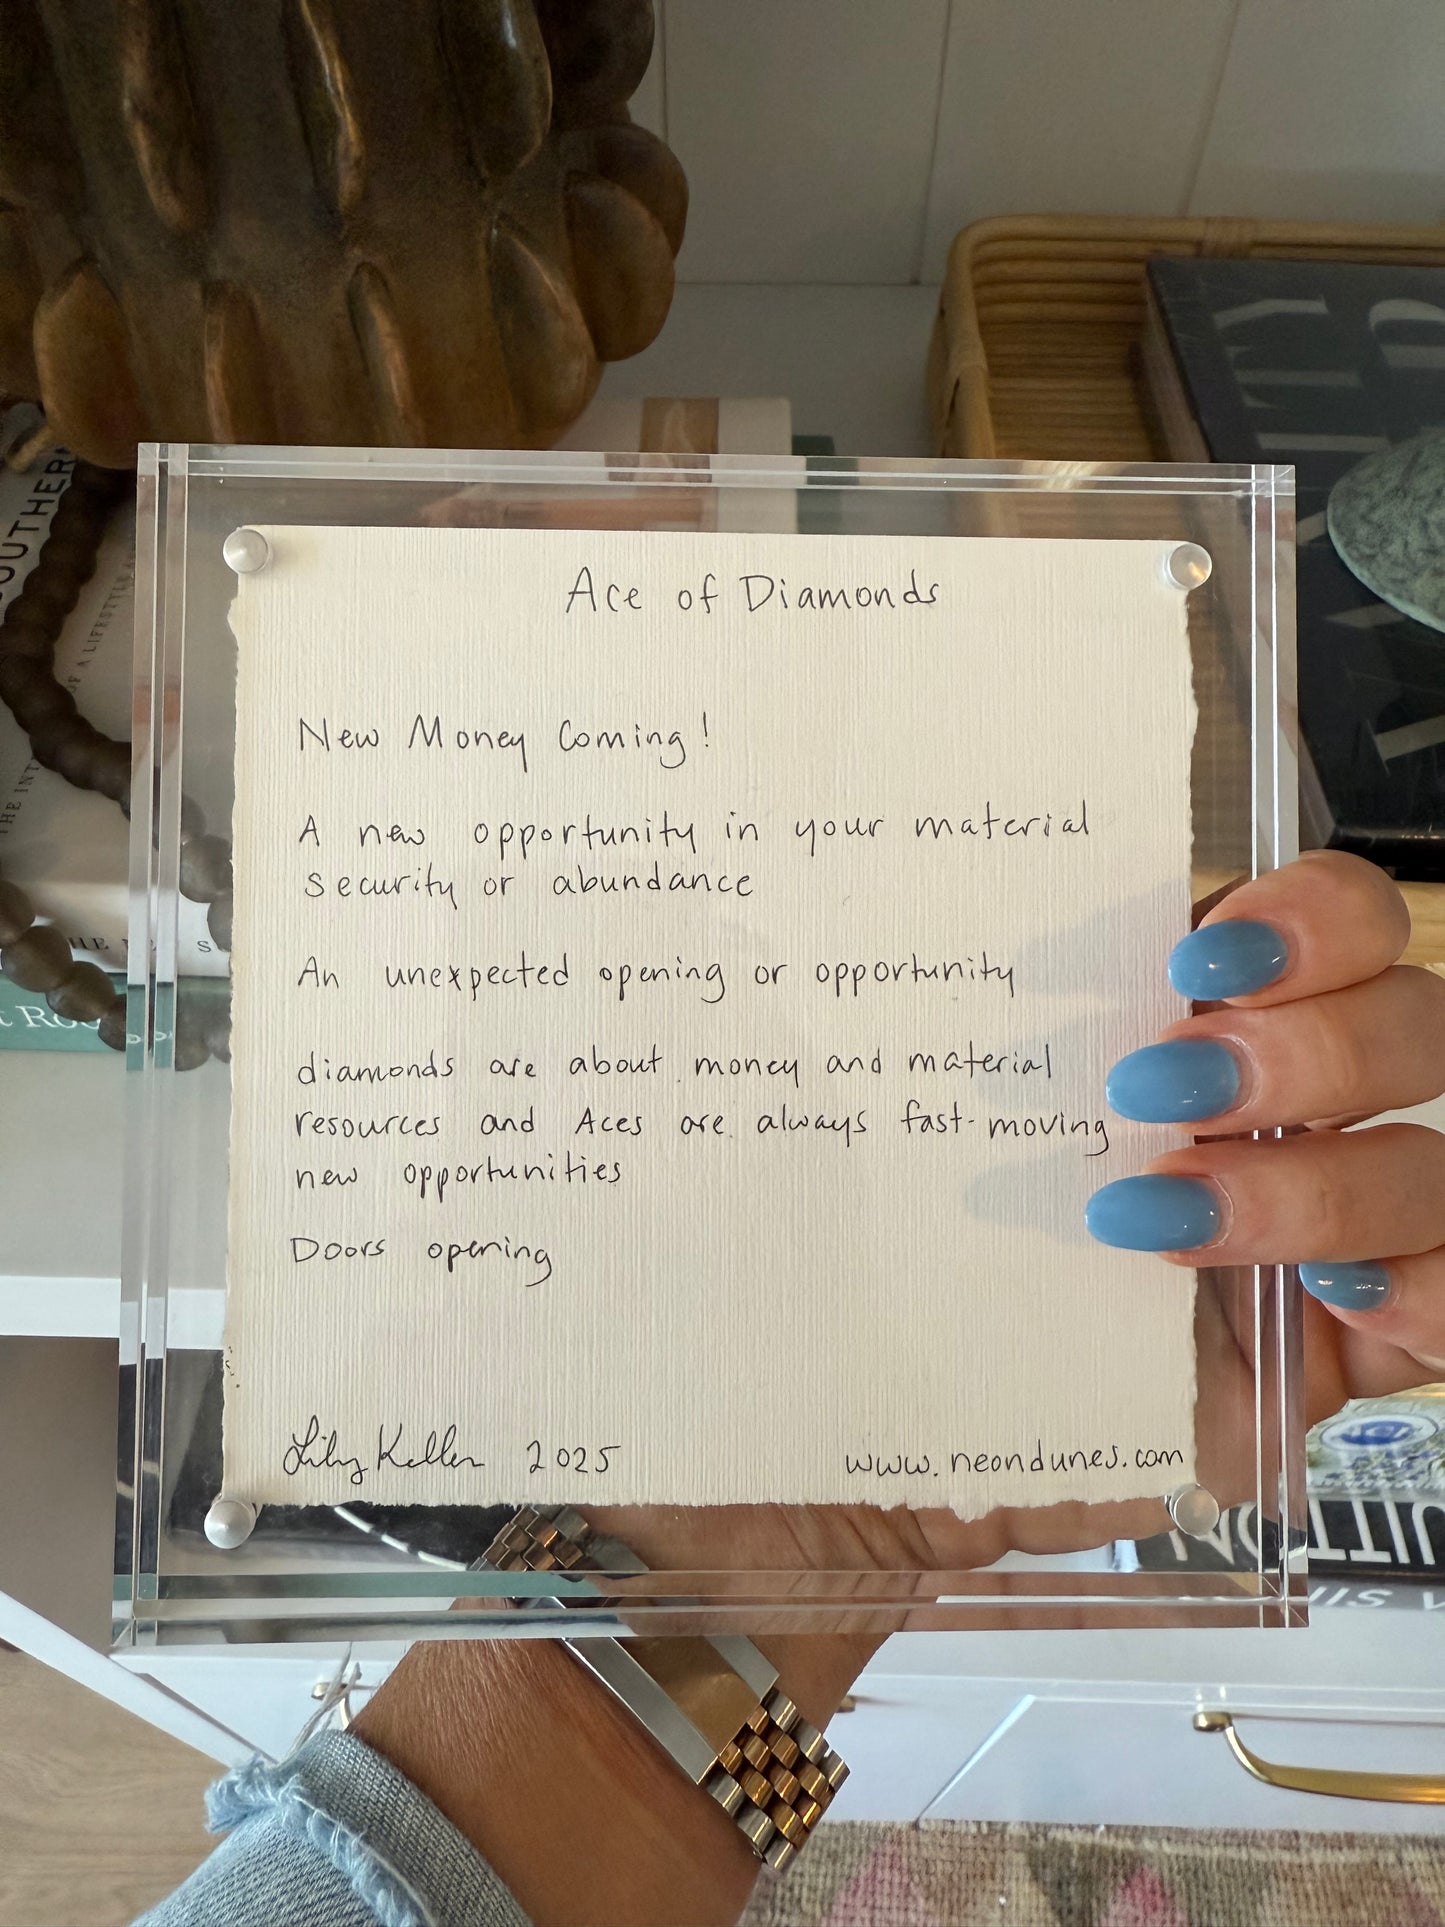 Ace of Diamonds
New Money Coming!
A new opportunity in your material
security or abundance
An unexpected opening or opportunity
diamonds are about money and material
resources and Aces are always fast-moving
new opportunities
Doors opening
Lily Keller 2025
www.neondunes.com
SOUTHERN
OF A LIFESTYLE
THE INT
THE NEW S